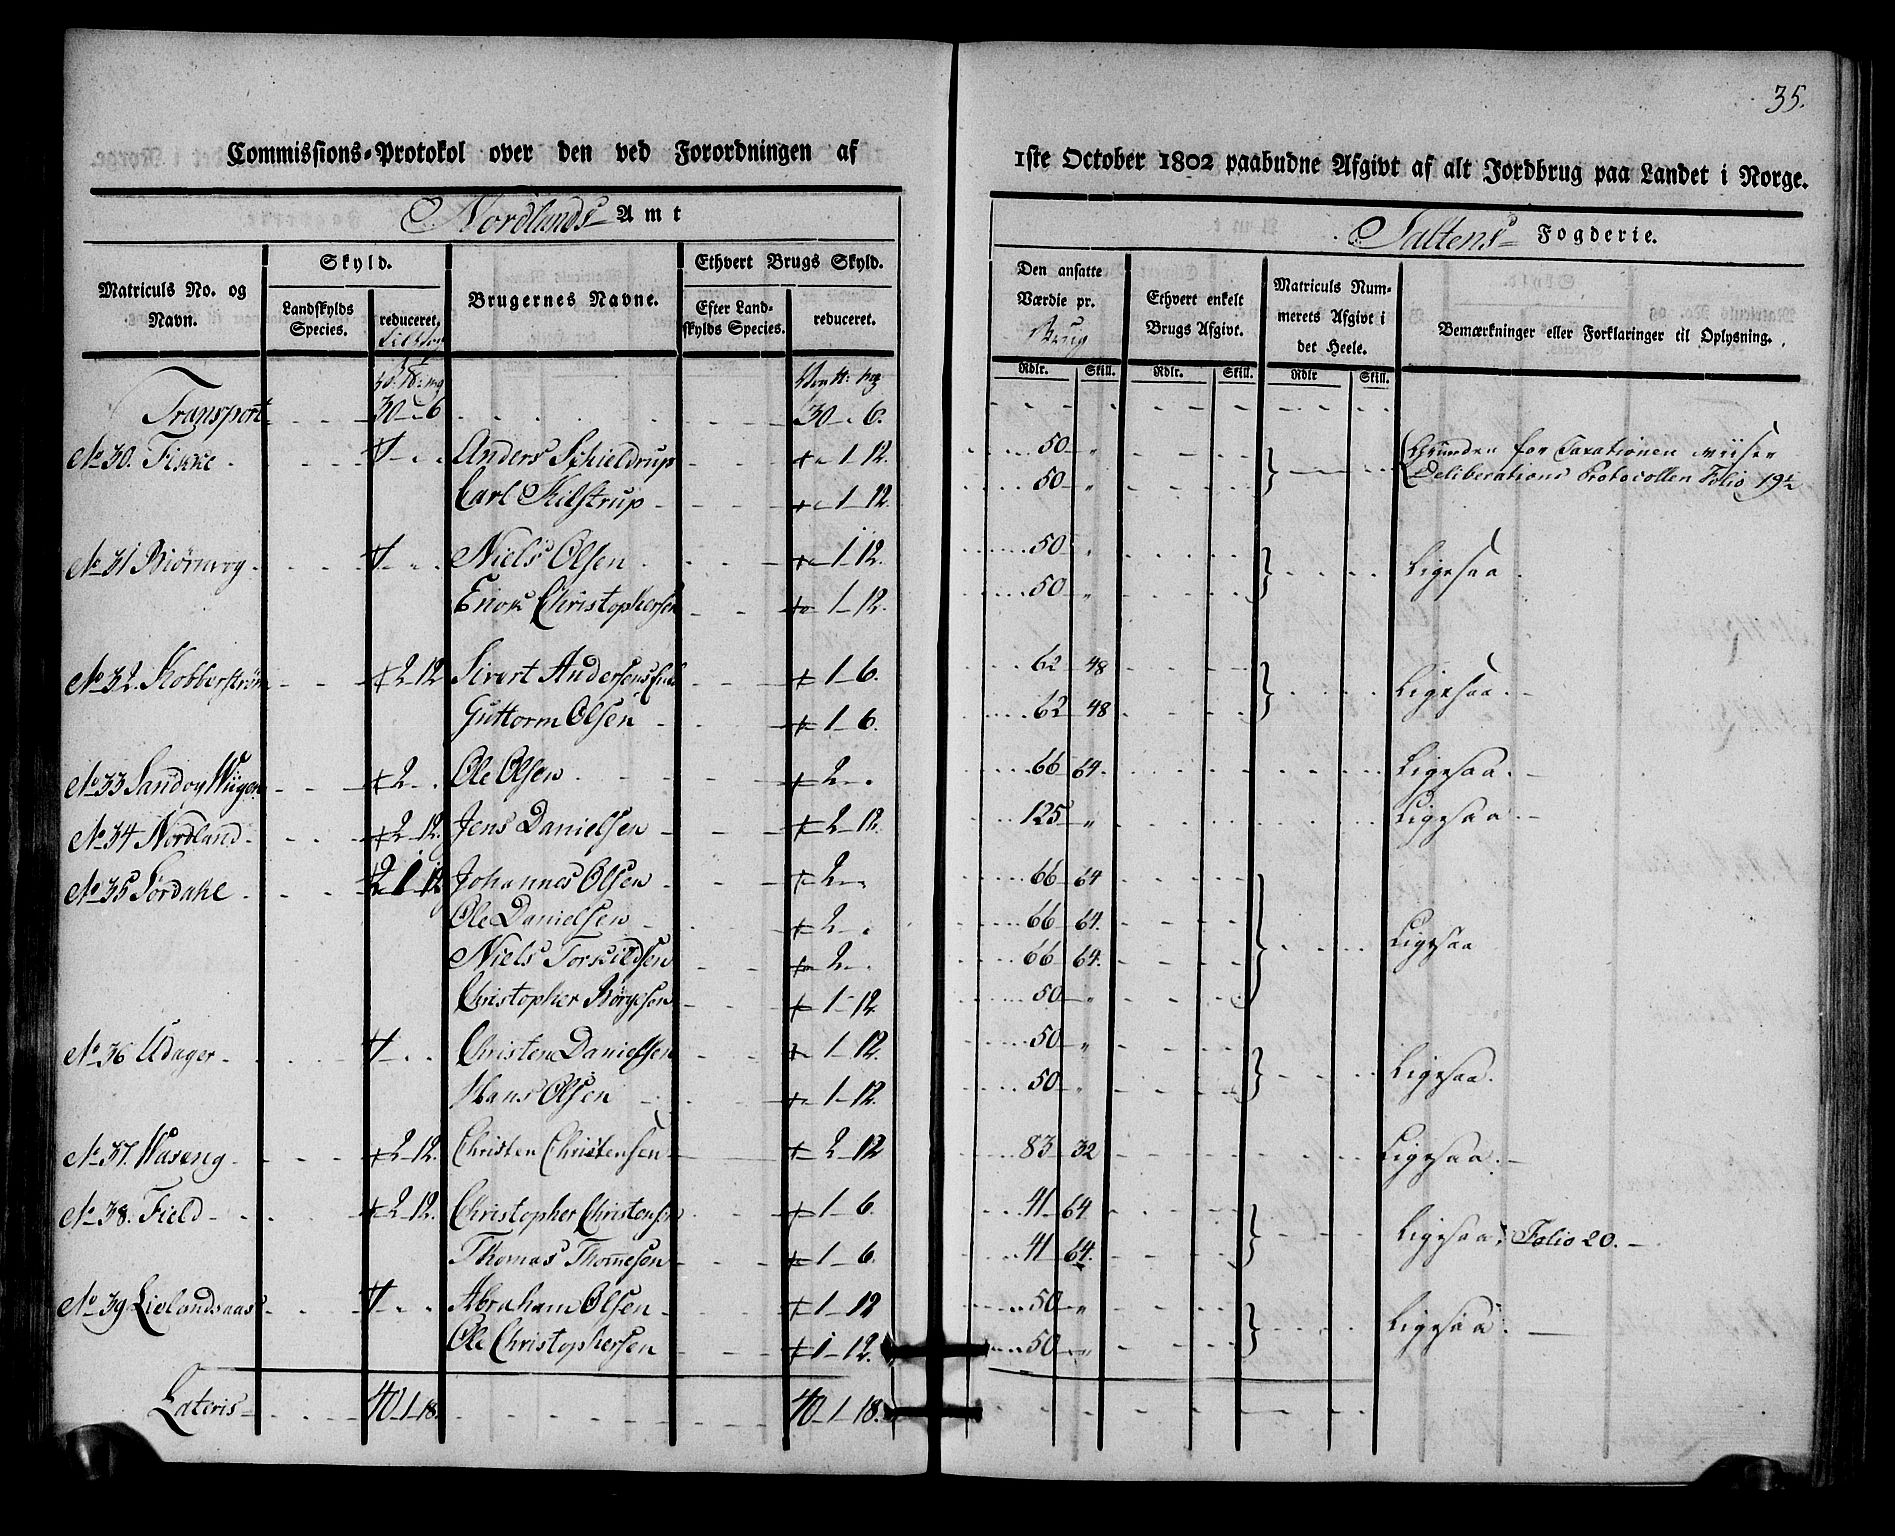 35.
Commissions-Protokol over den ved Forordningen af
1ste October 1802 paabudne Afgivt af alt Jordbrug paa Landet i Norge.
Nordlands Amt
Saltens Fogderie.
Matriculs No. og Navn.
Skyld.
Landskylds Species.
reduceret,
Brugernes Navne.
Ethvert Brugs Skyld.
Efter Landskylds Species.
reduceret.
Den ansatte Værdie pr. Brug
Rdlr. Skill.
Ethvert enkelt Brugs Afgivt.
Rdlr. Skill.
Matriculs Nummerets Afgivt i det Heele.
Rdlr Skill.
Bemærkninger eller Forklaringer til Oplysning.
Transport 30 - 6 30 - 6.
No 30. Fiske Anders Schieldrup 1 12. 50 Grunden for Taxationen viiser
Carl Skilstrup 1 12. 50 Deliberations Protocollen Folio 19
No 31 Biørnvog Niels Olsen 1 12. 50 Ligesaa
Enok Christophersen 1 12. 50
No 32. Kobberstrøm 2 12 Sivert Andersens 1 6. 62 48 Ligesaa
Guttorm Olsen 1 6. 62 48
No 33 Sandvog 2 Ole Olsen 2 66 64. Ligesaa.
No 34 Nordland 2 12. Jens Danielsen 2 12. 125 Ligesaa
No 35 Sørdahl 2 1 12 Johannes Olsen 2 66 64
Ole Danielsen 2 66 64. Ligesaa
Niels Torkildsen 2 66 64.
Christopher Børgesen 1 12 50
No 36 Udager Christen Danielsen 1 12. 50
Hans Olsen 1 12. 50 Ligesaa.
No 37. Waseng 2 12. Christen Christensen 2 12 83 32 Ligesaa.
No 38. Field 2 12. Christopher Christensen 1 6. 41 64 Ligesaa, Folio 20.
Thomas Thomesen 1 6. 41 64.
No 39 Lielandsaas Abraham Olsen 1 12 50 Ligesaa
Ole Christophersen 1 12. 50
Lateris 40 1 18. 40 1 18.